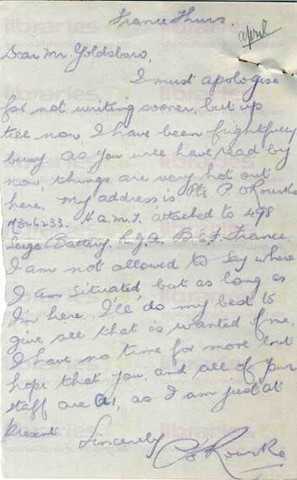 France Thurs.
april
Dear Mr. Goldsboro,
I must apologise
for not writing sooner, but up
till now I have been frightfully
busy as you will have read by
now, things are very hot out
here. my address is. Pte P O'Rourke
H.a.m.T. attached to 498
Seige Battery, R.G.A. B.E.F. France
I am not allowed to say where
I am situated, but as long as
I'm here I'll do my best to
give all that is wanted of me.
I have no time for more but
hope that you and all of your
staff are A1, as I am just at
present.
Sincerely
P O'Rourke
libraries